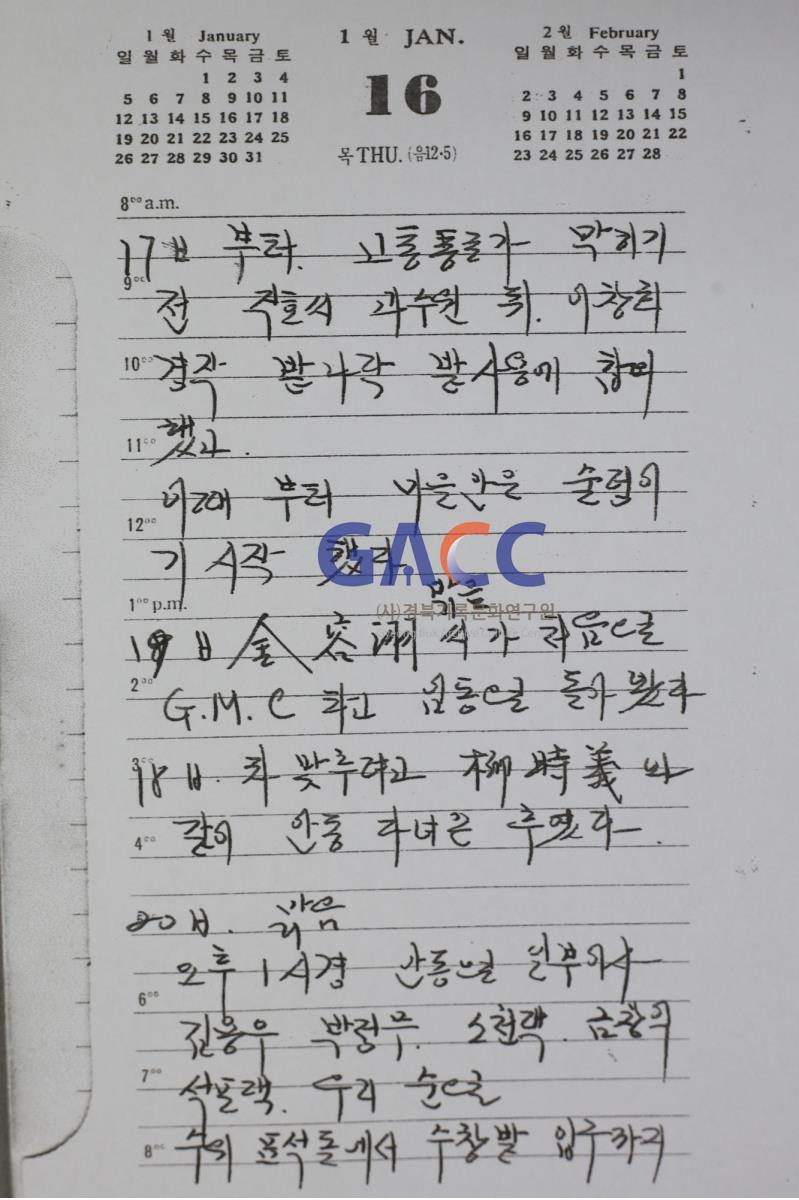 1월 January
일 월 화 수 목 금 토
1 2 3 4
5 6 7 8 9 10 11
12 13 14 15 16 17 18
19 20 21 22 23 24 25
26 27 28 29 30 31
1월 JAN.
16
목 THU. (음12·5)
2월 February
일 월 화 수 목 금 토
1
2 3 4 5 6 7 8
9 10 11 12 13 14 15
16 17 18 19 20 21 22
23 24 25 26 27 28
8⁰⁰ a.m.
17日 부터. 고통통로가 막히기
9⁰⁰
전 직호씨 과수원 뒤. 이창희
10⁰⁰
경작 밭 나락 밭 사용에 참여
11⁰⁰
했다.
이때 부터 마을안은 술렁이
12⁰⁰
기 시작 했다
GACC
1⁰⁰ p.m.
(사)경북기록문화연구원
막둘
19日 金容 씨가 처음으로
2⁰⁰
G.M.C 타고 임동으로 돌아 왔다
3⁰⁰
18日. 차 맞추려고 柳時義 와
4⁰⁰
같이 안동 다녀온 후였다.
20日. 맑음
오후 1시경 안동으로 일부이사
6⁰⁰
김용우 박령무. 소천댁. 금창의
7⁰⁰
석포댁. 우리 순으로
8⁰⁰
수의 표석돌에서 수창밭 입구까지